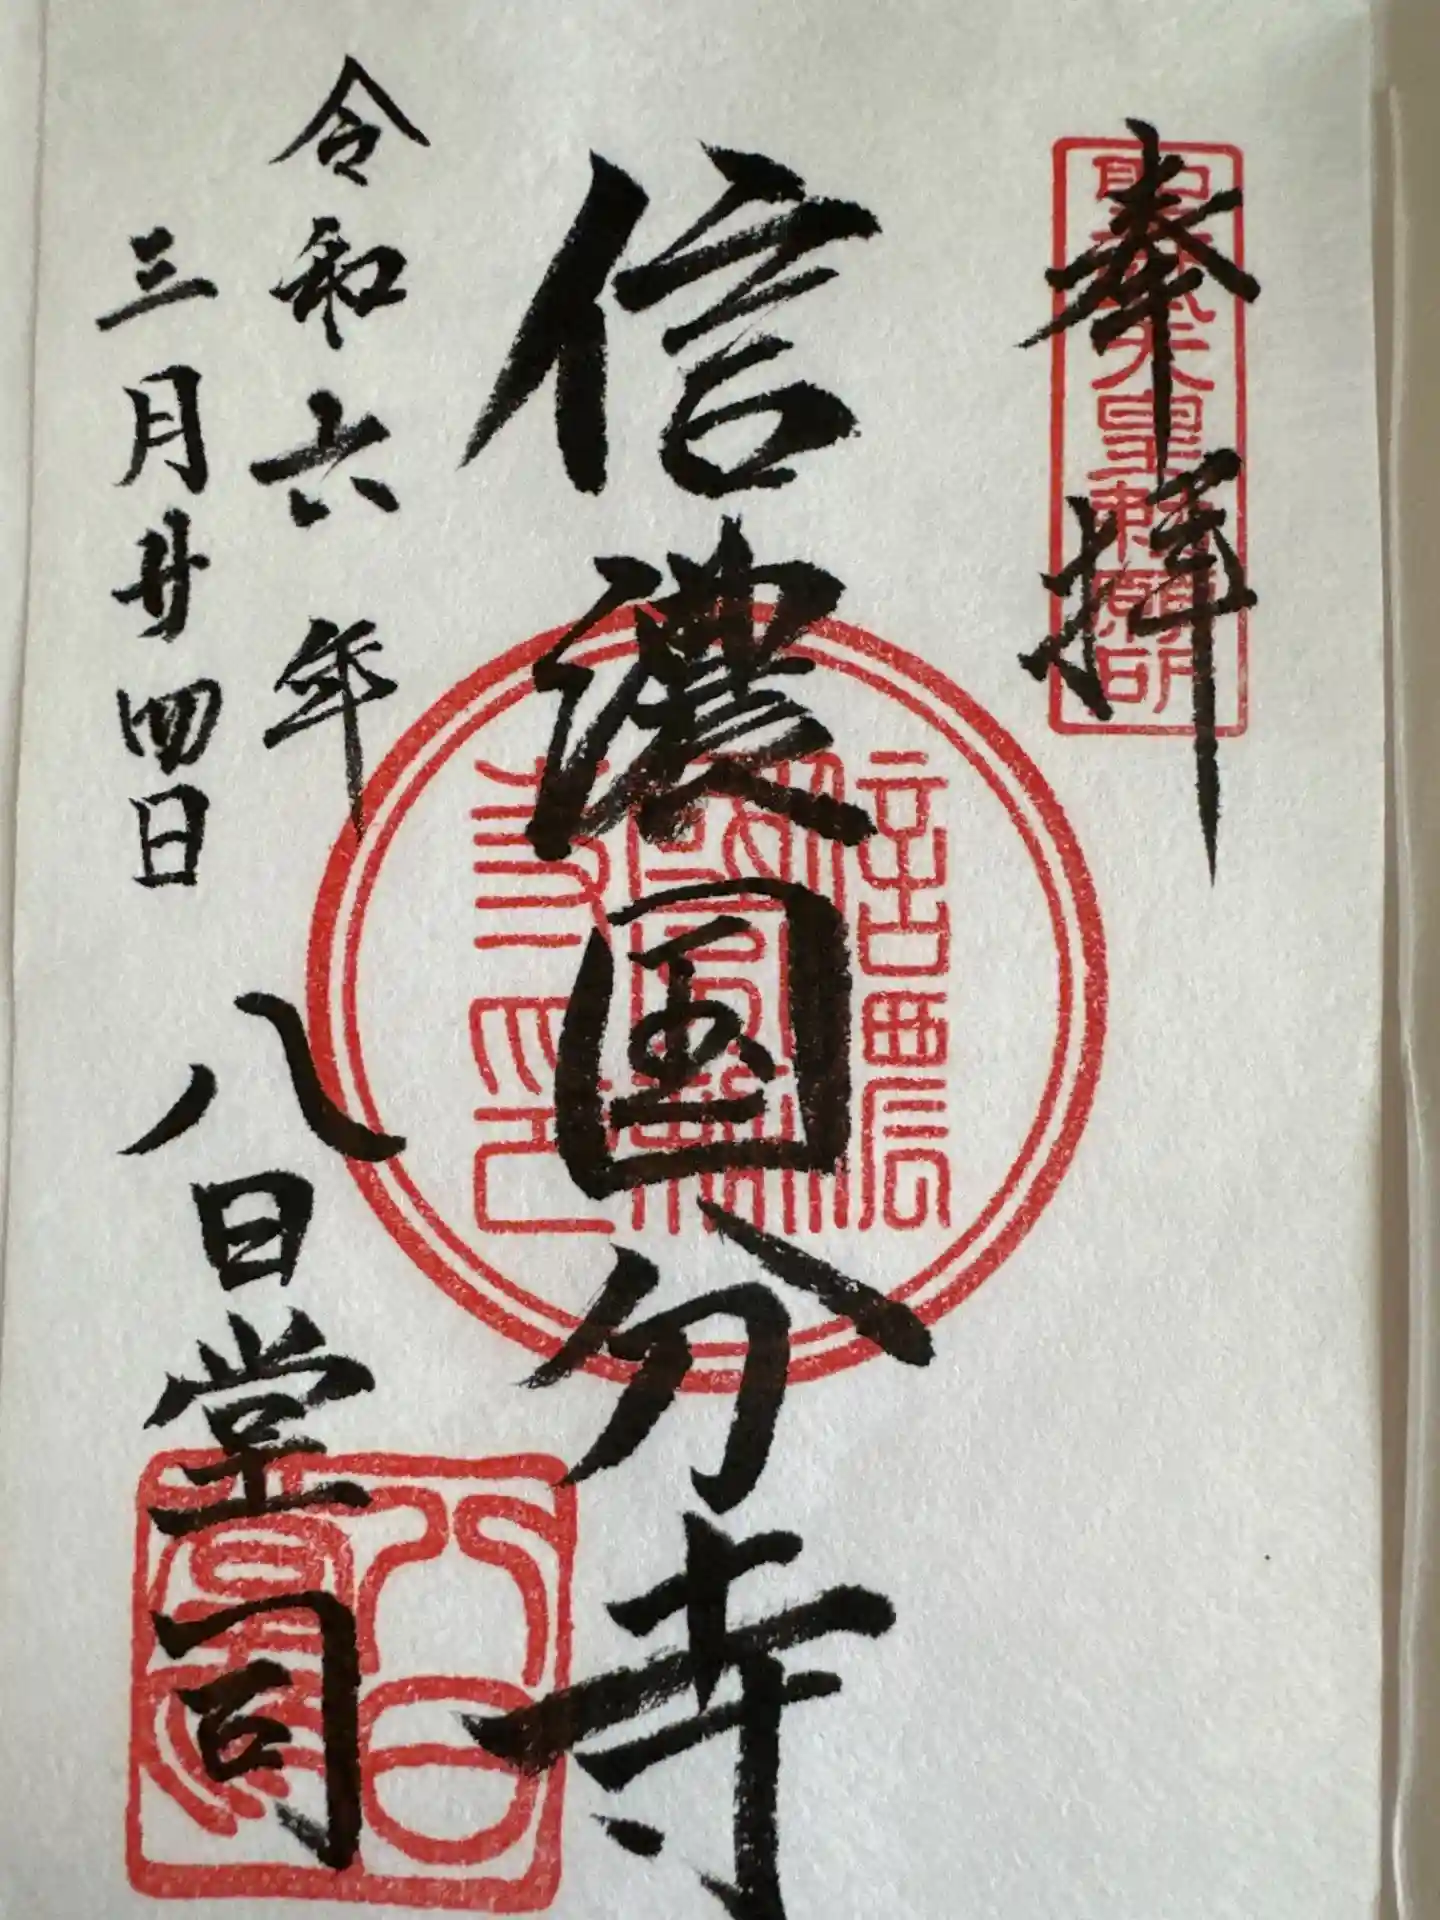 奉拝
聖武天皇勅願所
信濃国分寺
令和六年
三月廿四日
八日堂司